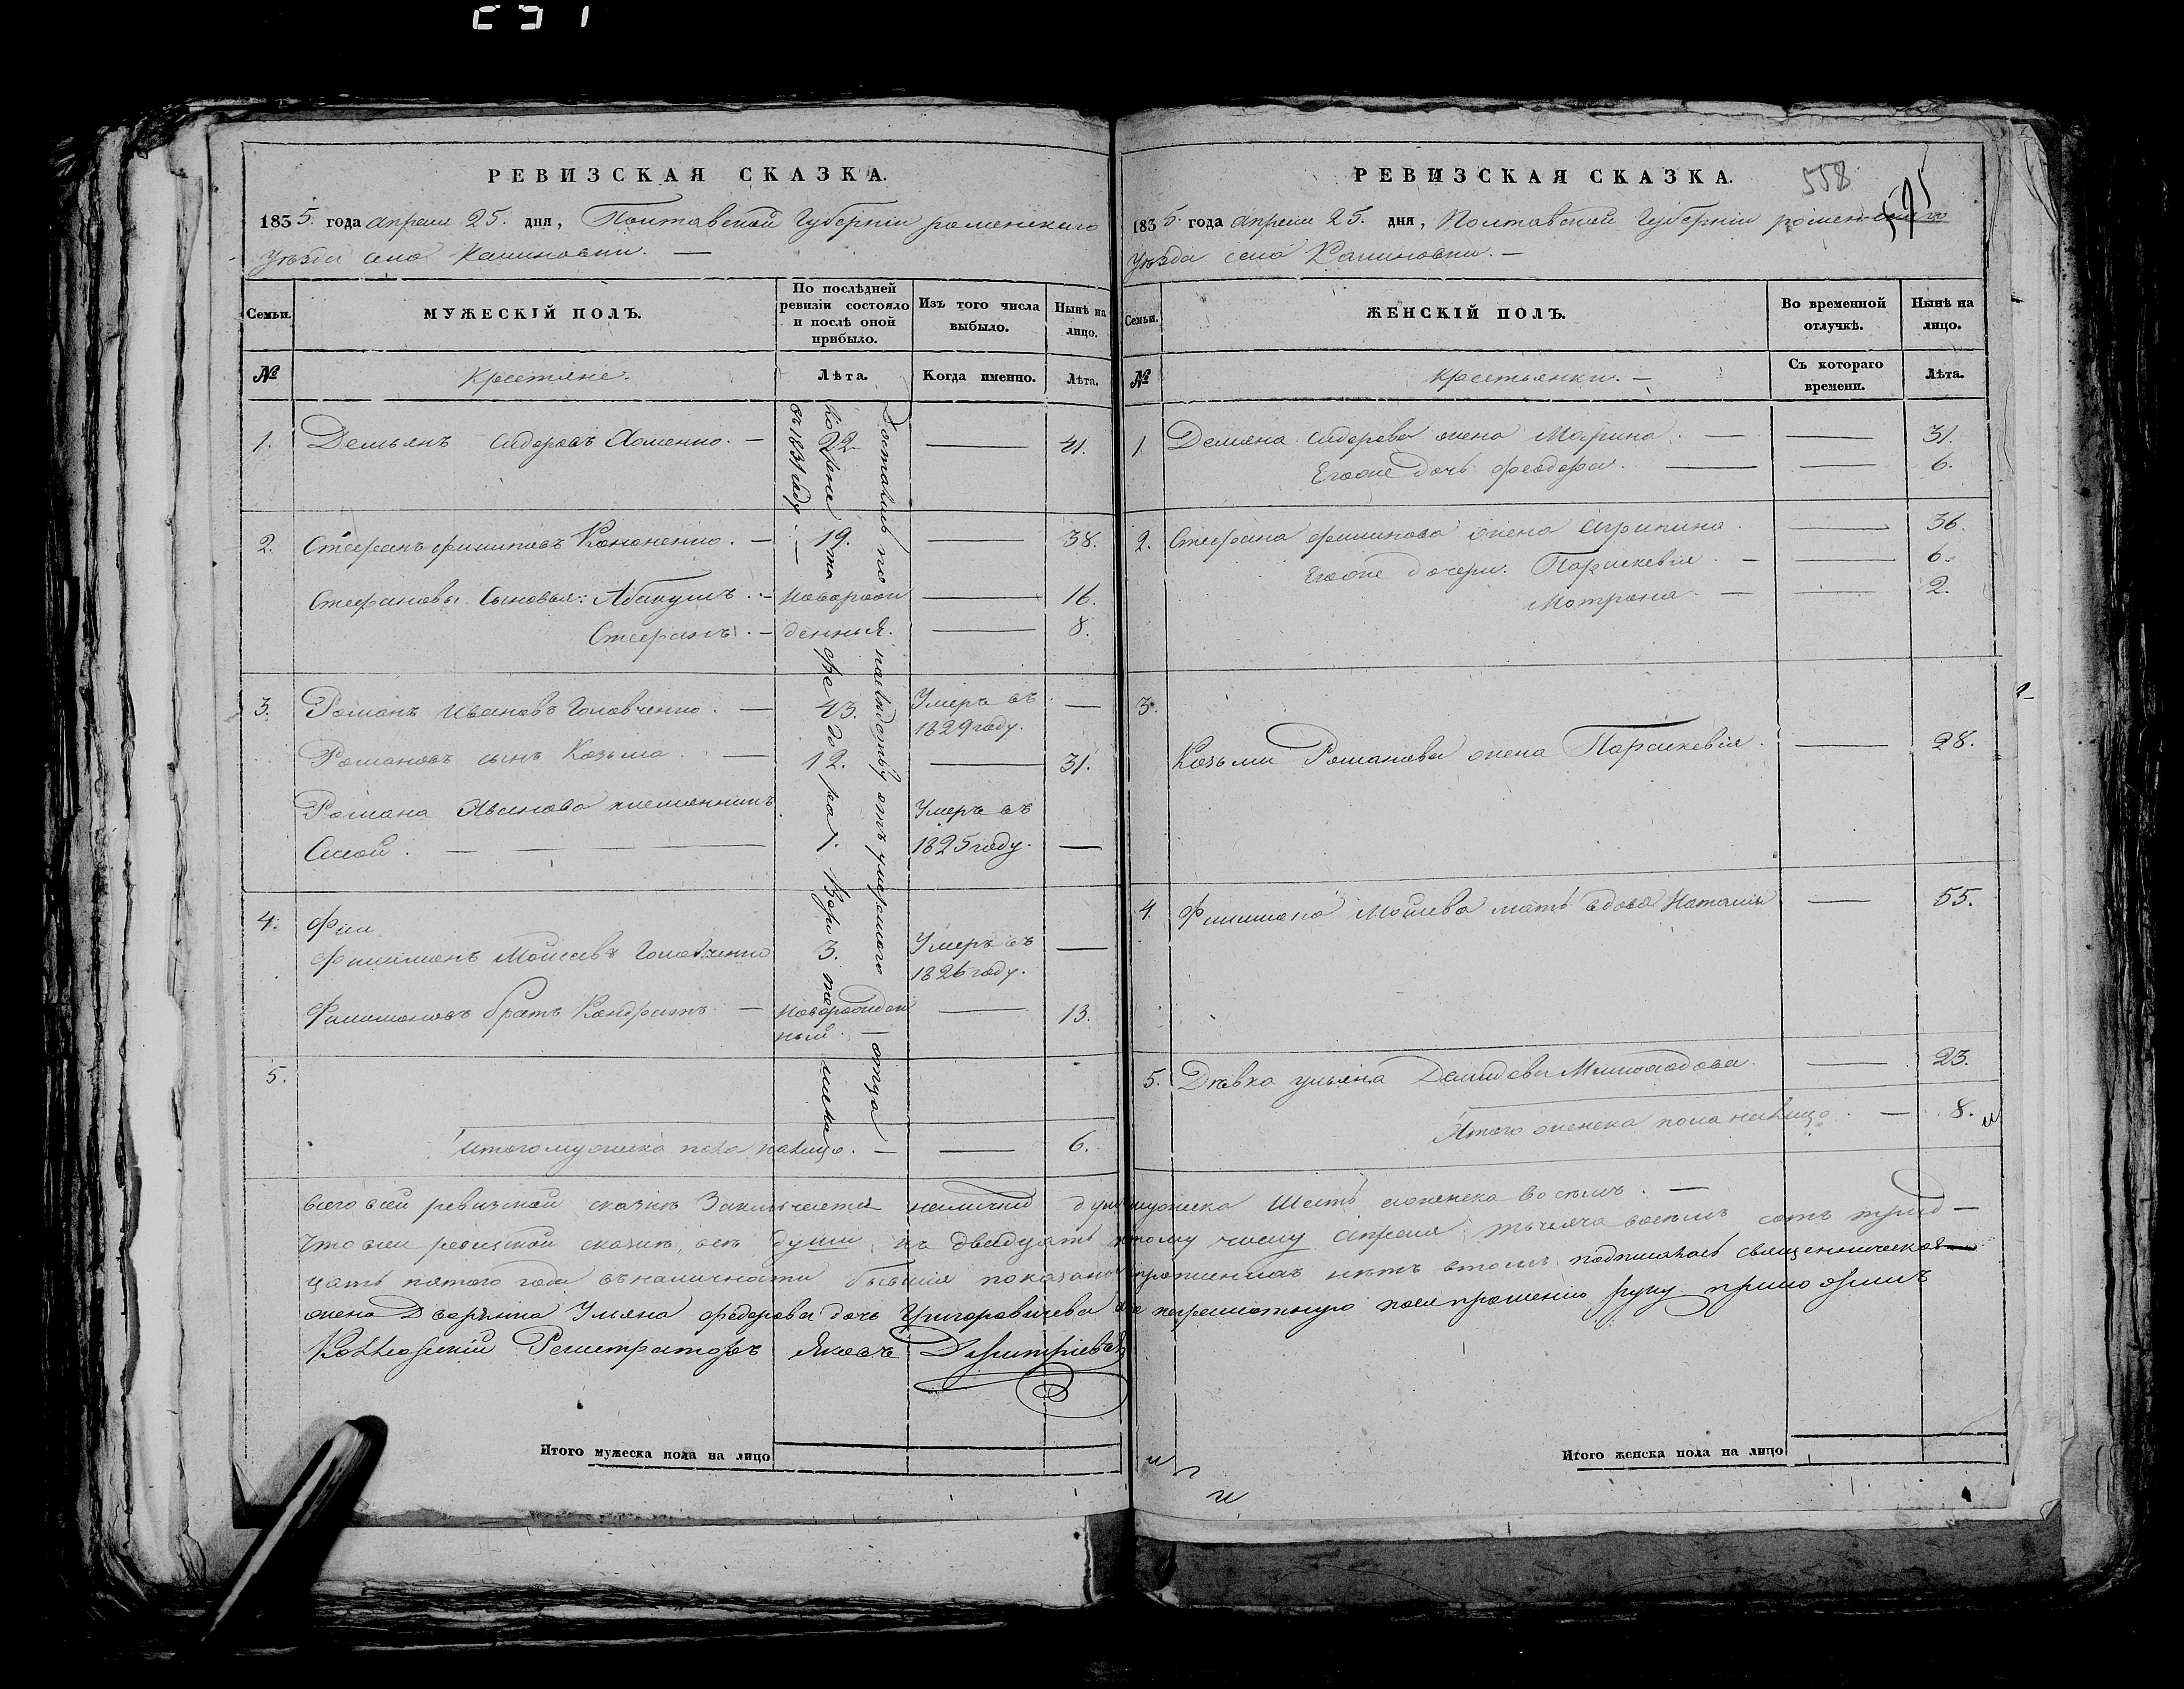 РЕВИЗСКАЯ СКАЗКА.
1835. года апреля 25. дня, Полтавской Губернiи роменского
Уѣзда села Калиновки. —
Семьи.
МУЖЕСКIЙ ПОЛЪ.
По послѣдней ревизiи состояло и послѣ оной прибыло.
Изъ того числа выбыло.
Нынѣ на лицо.
№
Крестьяне.
Лѣта.
Когда именно.
Лѣта.
1. Демьянъ Сидоровъ Хоменко. — 22 — 41.
2. Стефанъ филиповъ Кононенко. — 19. — 38.
Стефановы Сыновья: Абакумъ. — новорож — 16.
Стефанъ. — денныя. — 8.
3. Романъ Ивановъ Головченко. — 43. Умеръ въ 1829 году. —
Романовъ сынъ Козьма. — 12. — 31.
Романа Иванова племянникъ
Сисой. — — — 1. Умеръ въ 1825 году. —
4. Фили
Филимонъ Мойсеевъ Головченко 3. Умеръ въ 1826 году. —
Филимоновъ братъ Кондратъ. — новорожден ный. — 13.
5.
Итого мужеска пола налицо. — — 6.
Достались по наслѣдству отъ умершого отца
въ 1831 году. —
РЕВИЗСКАЯ СКАЗКА.
558
1835 года апреля 25. дня, Полтавской Губернiи роменского
Уѣзда села Калиновки. —
Семьи.
ЖЕНСКIЙ ПОЛЪ.
Во временной отлучкѣ.
Нынѣ на лицо.
№
Крестьянки. —
Съ котораго времени.
Лѣта.
1 Демяна Сидорова жена Марина. — — 31.
Егоже дочь феодора. — — 6.
2. Стефана филипова жена Агрипина. — 36.
Егоже дочери. Параскевiя. — — 6.
Мотрона. — — 2.
3.
Козьми Романова жена Параскевiя. — 28.
4. Филимона Мойсева мать вдова Наталiя — 55.
5. Дѣвка ульяна Демидова — 23.
Итого женска пола налицо. — 8.
Всего всей ревизской сказкѣ Заключается наличныхъ душъ мужеска Шесть аженска восемъ. —
Что всей ревизской сказкѣ, всѣ души, къ двадцать пятому числу апреля тысяча восемь сотъ трид —
цать пятого года въналичности бывшiя показаны прописныхъ нѣтъ втомъ подписалась священническая
жена Дворянка Ульяна федорова дочь Григоровичева анеграмотную поеяпрошенiю руку приложилъ
Коллежскiй Регистраторъ Яковъ Дмитрiевъ
Итого мужеска пола на лицо
Итого женска пола на лицо